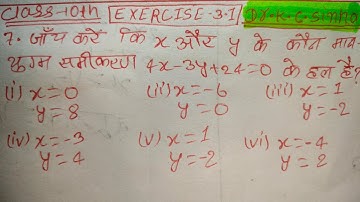 class-10th EXERCISE-3.1 Dr. K.C. Sinha
7. जाँच करें कि x और y के कौन मान
युग्म समीकरण 4x-3y+24=0 के हल हैं?
(i) x=0 (ii) x=-6 (iii) x=1
y=8 y=0 y=-2
(iv) x=-3 (v) x=1 (vi) x=-4
y=4 y=-2 y=2